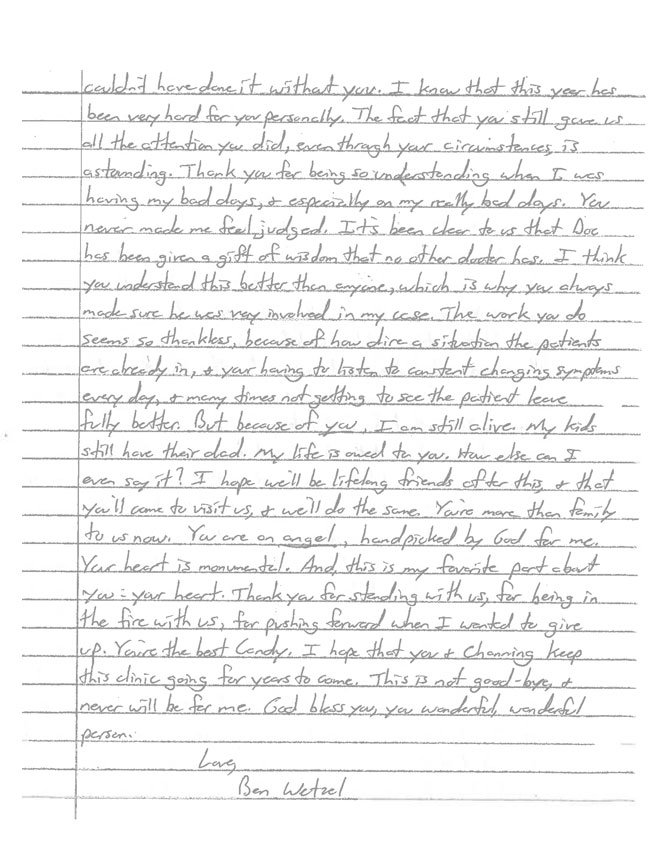 couldn't have done it without you. I know that this year has
been very hard for you personally. The fact that you still gave us
all the attention you did, even through your circumstances, is
astounding. Thank you for being so understanding when I was
having my bad days, & especially on my really bad days. You
never made me feel judged. It's been clear to us that Doc
has been given a gift of wisdom that no other doctor has. I think
you understand this better than anyone, which is why you always
made sure he was very involved in my case. The work you do
seems so thankless, because of how dire a situation the patients
are already in, & your having to listen to constant changing symptoms
every day, & many times not getting to see the patient leave
fully better. But because of you, I am still alive. My kids
still have their dad. My life is owed to you. How else can I
even say it? I hope we'll be lifelong friends after this, & that
you'll come to visit us, & we'll do the same. You're more than family
to us now. You are an angel, handpicked by God for me.
Your heart is monumental. And, this is my favorite part about
you: your heart. Thank you for standing with us, for being in
the fire with us, for pushing forward when I wanted to give
up. You're the best Candy. I hope that you & Channing keep
this clinic going for years to come. This is not good-bye, &
never will be for me. God bless you, you wonderful, wonderful
person.
Love,
Ben Wetzel